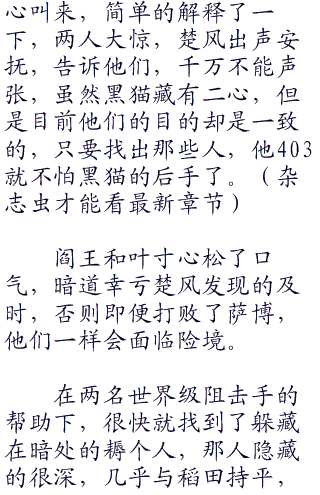 心叫来，简单的解释了一
下，两人大惊，楚风出声安
抚，告诉他们，千万不能声
张，虽然黑猫藏有二心，但
是目前他们的目的却是一致
的，只要找出那些人，他403
就不怕黑猫的后手了。（杂
志虫才能看最新章节）
阎王和叶寸心松了口
气，暗道幸亏楚风发现的及
时，否则即便打败了萨博，
他们一样会面临险境。
在两名世界级阻击手的
帮助下，很快就找到了躲藏
在暗处的耨个人，那人隐藏
的很深，几乎与稻田持平，